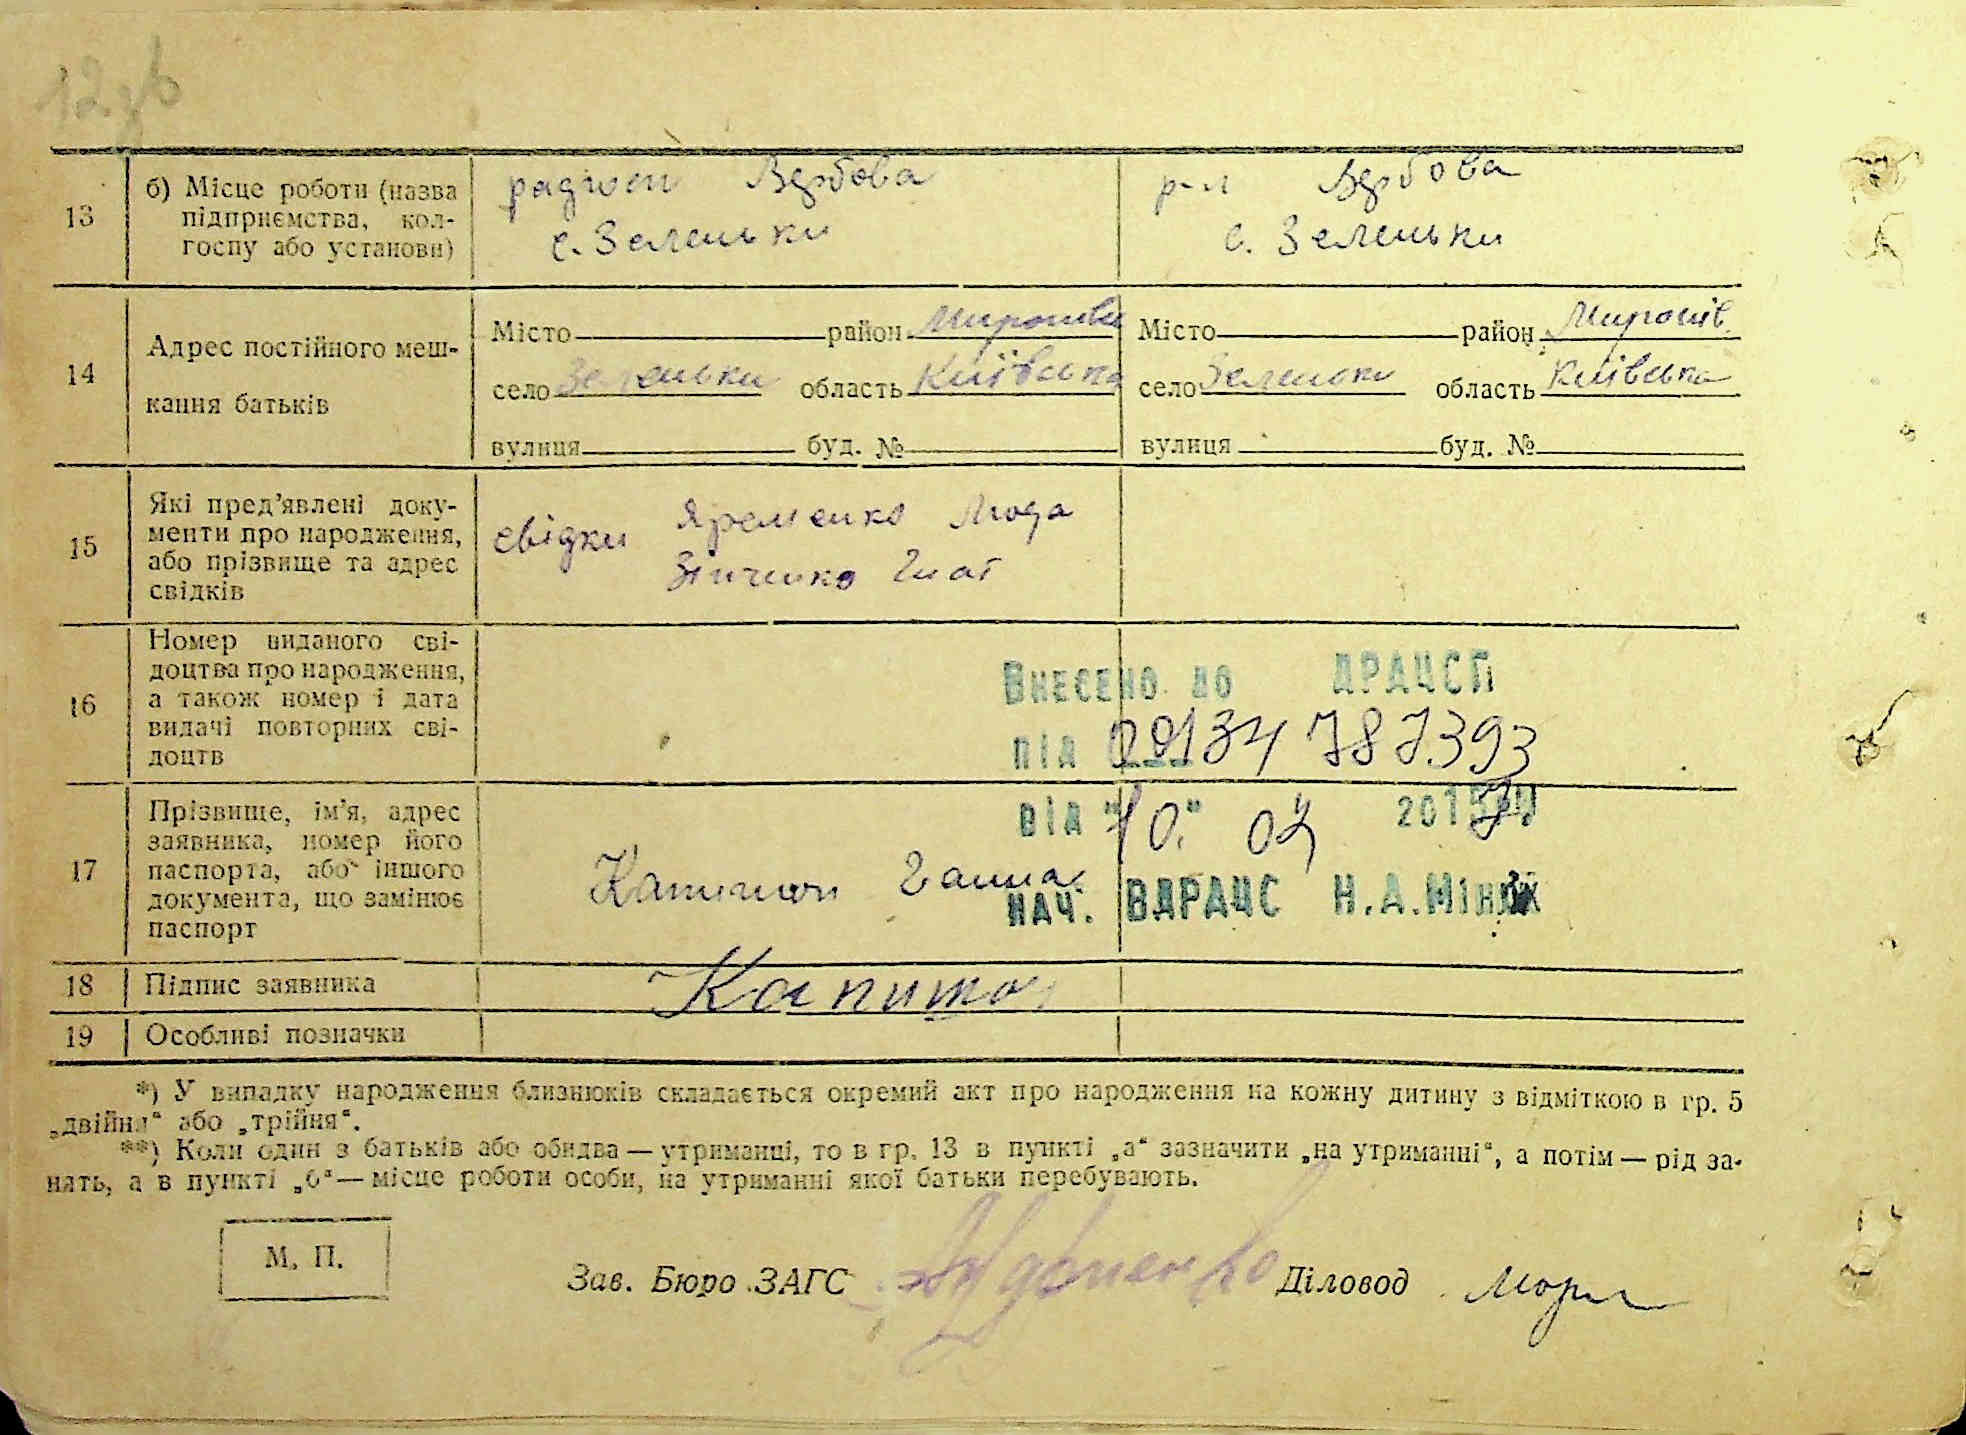 13
б) Місце роботи (назва
підприємства, кол-
госпу або установи)
Вербова
с. Зеленьки
Вербова
с. Зеленьки
14
Адрес постійного меш-
кання батьків
Місто район
село Зеленьки область Київська
вулиця буд. №
Місто район Миронів
село Зеленьки область Київська
вулиця буд. №
15
Які пред'явлені доку-
менти про народження,
або прізвище та адрес
свідків
свідки Яременко
Зінченко Гнат
16
Номер виданого сві-
доцтва про народження,
а також номер і дата
видачі повторних сві-
доцтв
Внесено до ДРАЦСГ
під 00134787393
17
Прізвище, ім'я, адрес
заявника, номер його
паспорта, або іншого
документа, що замінює
паспорт
від "10."
Ганна
НАЧ. ВДРАЦС Н.А.
18 Підпис заявника
19 Особливі позначки
*) У випадку народження близнюків складається окремий акт про народження на кожну дитину з відміткою в гр. 5
„двійня“ або „трійня“.
**) Коли один з батьків або обидва — утриманці, то в гр. 13 в пункті „а“ зазначити „на утриманні“, а потім — рід за-
нять, а в пункті „б“ — місце роботи особи, на утриманні якої батьки перебувають.
М. П.
Зав. Бюро ЗАГС Діловод